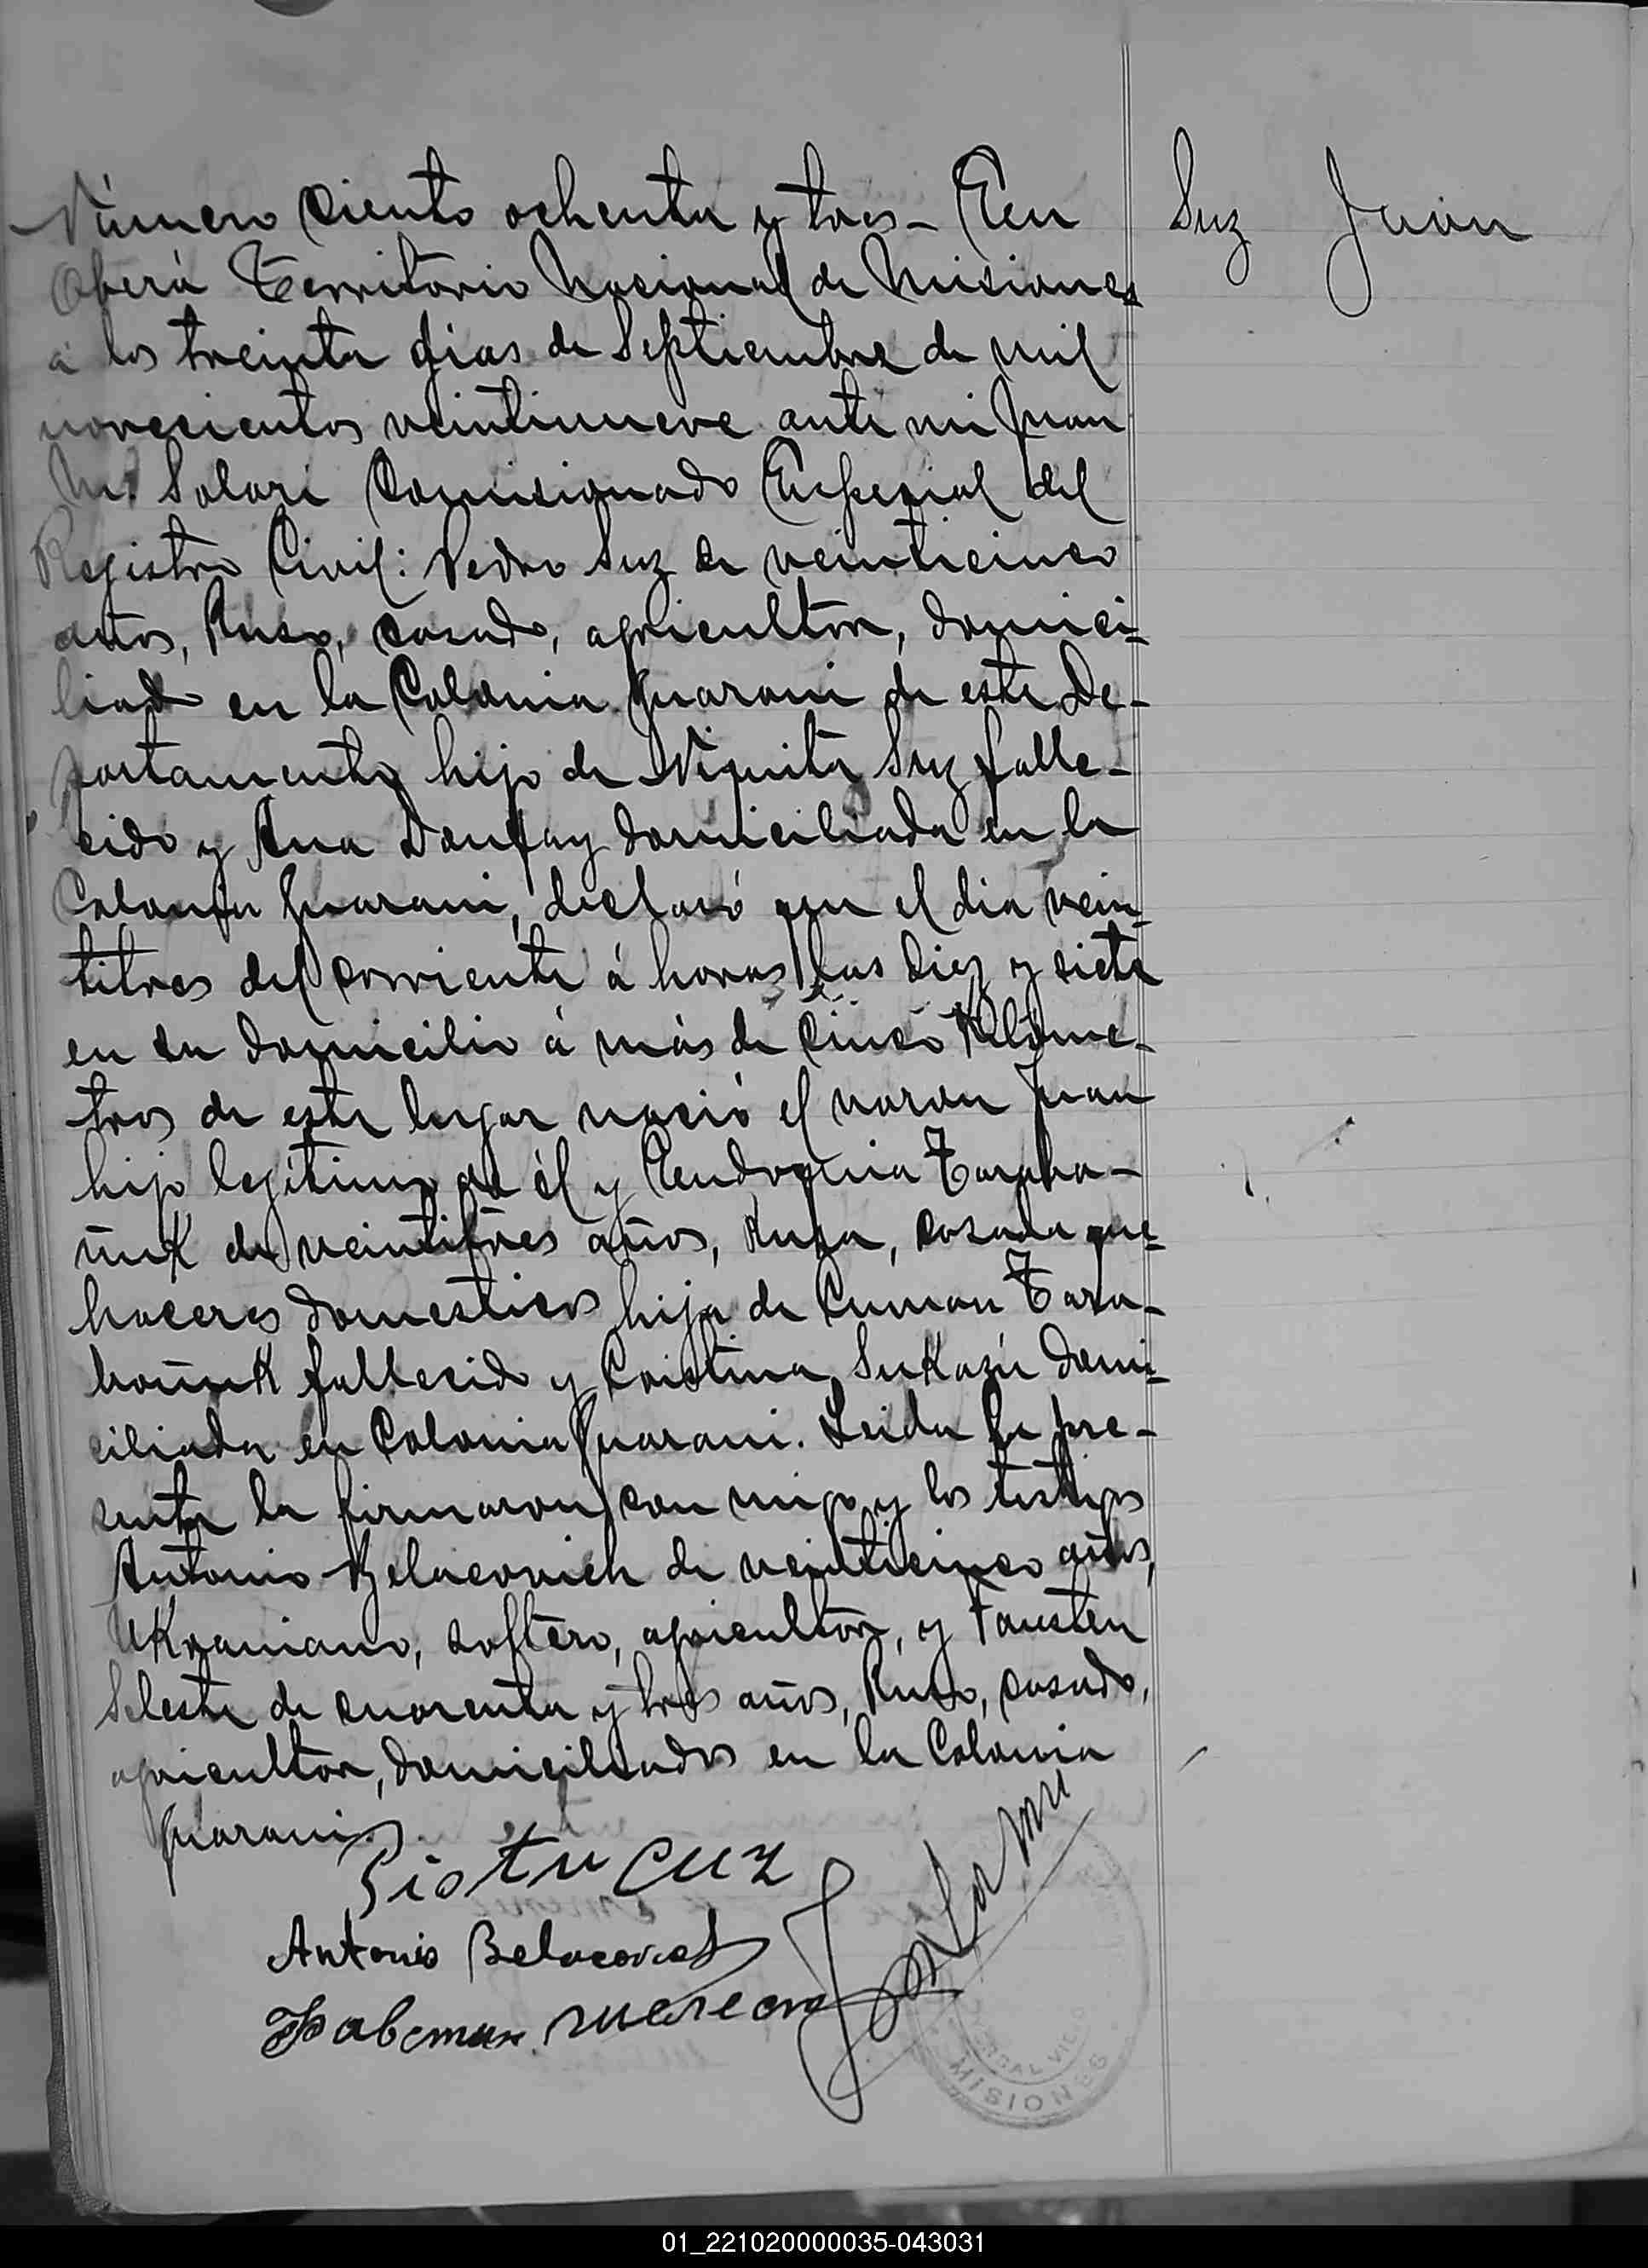 Número Ciento ochenta y tres – En
Oberá Territorio Nacional de Misiones
á los treinta dias de Septiembre de mil
novecientos veintinueve ante mi Juan
M. Solari Comisionado Especial del
Registro Civil: Pedro Suz de veinticinco
años, Ruso, casado, agricultor, domici=
liado en la Colonia Guarani de este De-
partamento hijo de Niquita Suz falle-
cido y Ana domiciliada en la
Colonia Guarani, declaró que el dia vein=
titres del corriente á horas las diez y siete
en su domicilio á más de cinco Kilóme-
tros de este lugar nació el varon Juan
hijo legítimo de él y Eudoquia Taraba-
ñuk de veintitres años, Rusa, casada que=
haceres domesticos hija de Cuman Tara-
bañuk fallecido y Cristina Sukazú domi=
ciliada en Colonia Guarani. Leida la pre-
sente la firmaron con migo y los testigos
Antonio Belacovich de veinticinco años,
Ukraniano, soltero, agricultor, y Fausten
Seleste de cuarenta y tres años, Ruso, casado,
agricultor, domiciliados en la Colonia
Guarani.
Suz Juan
Piotr Cuz
Antonio Belacovich
MISIONES
01_221020000035-043031